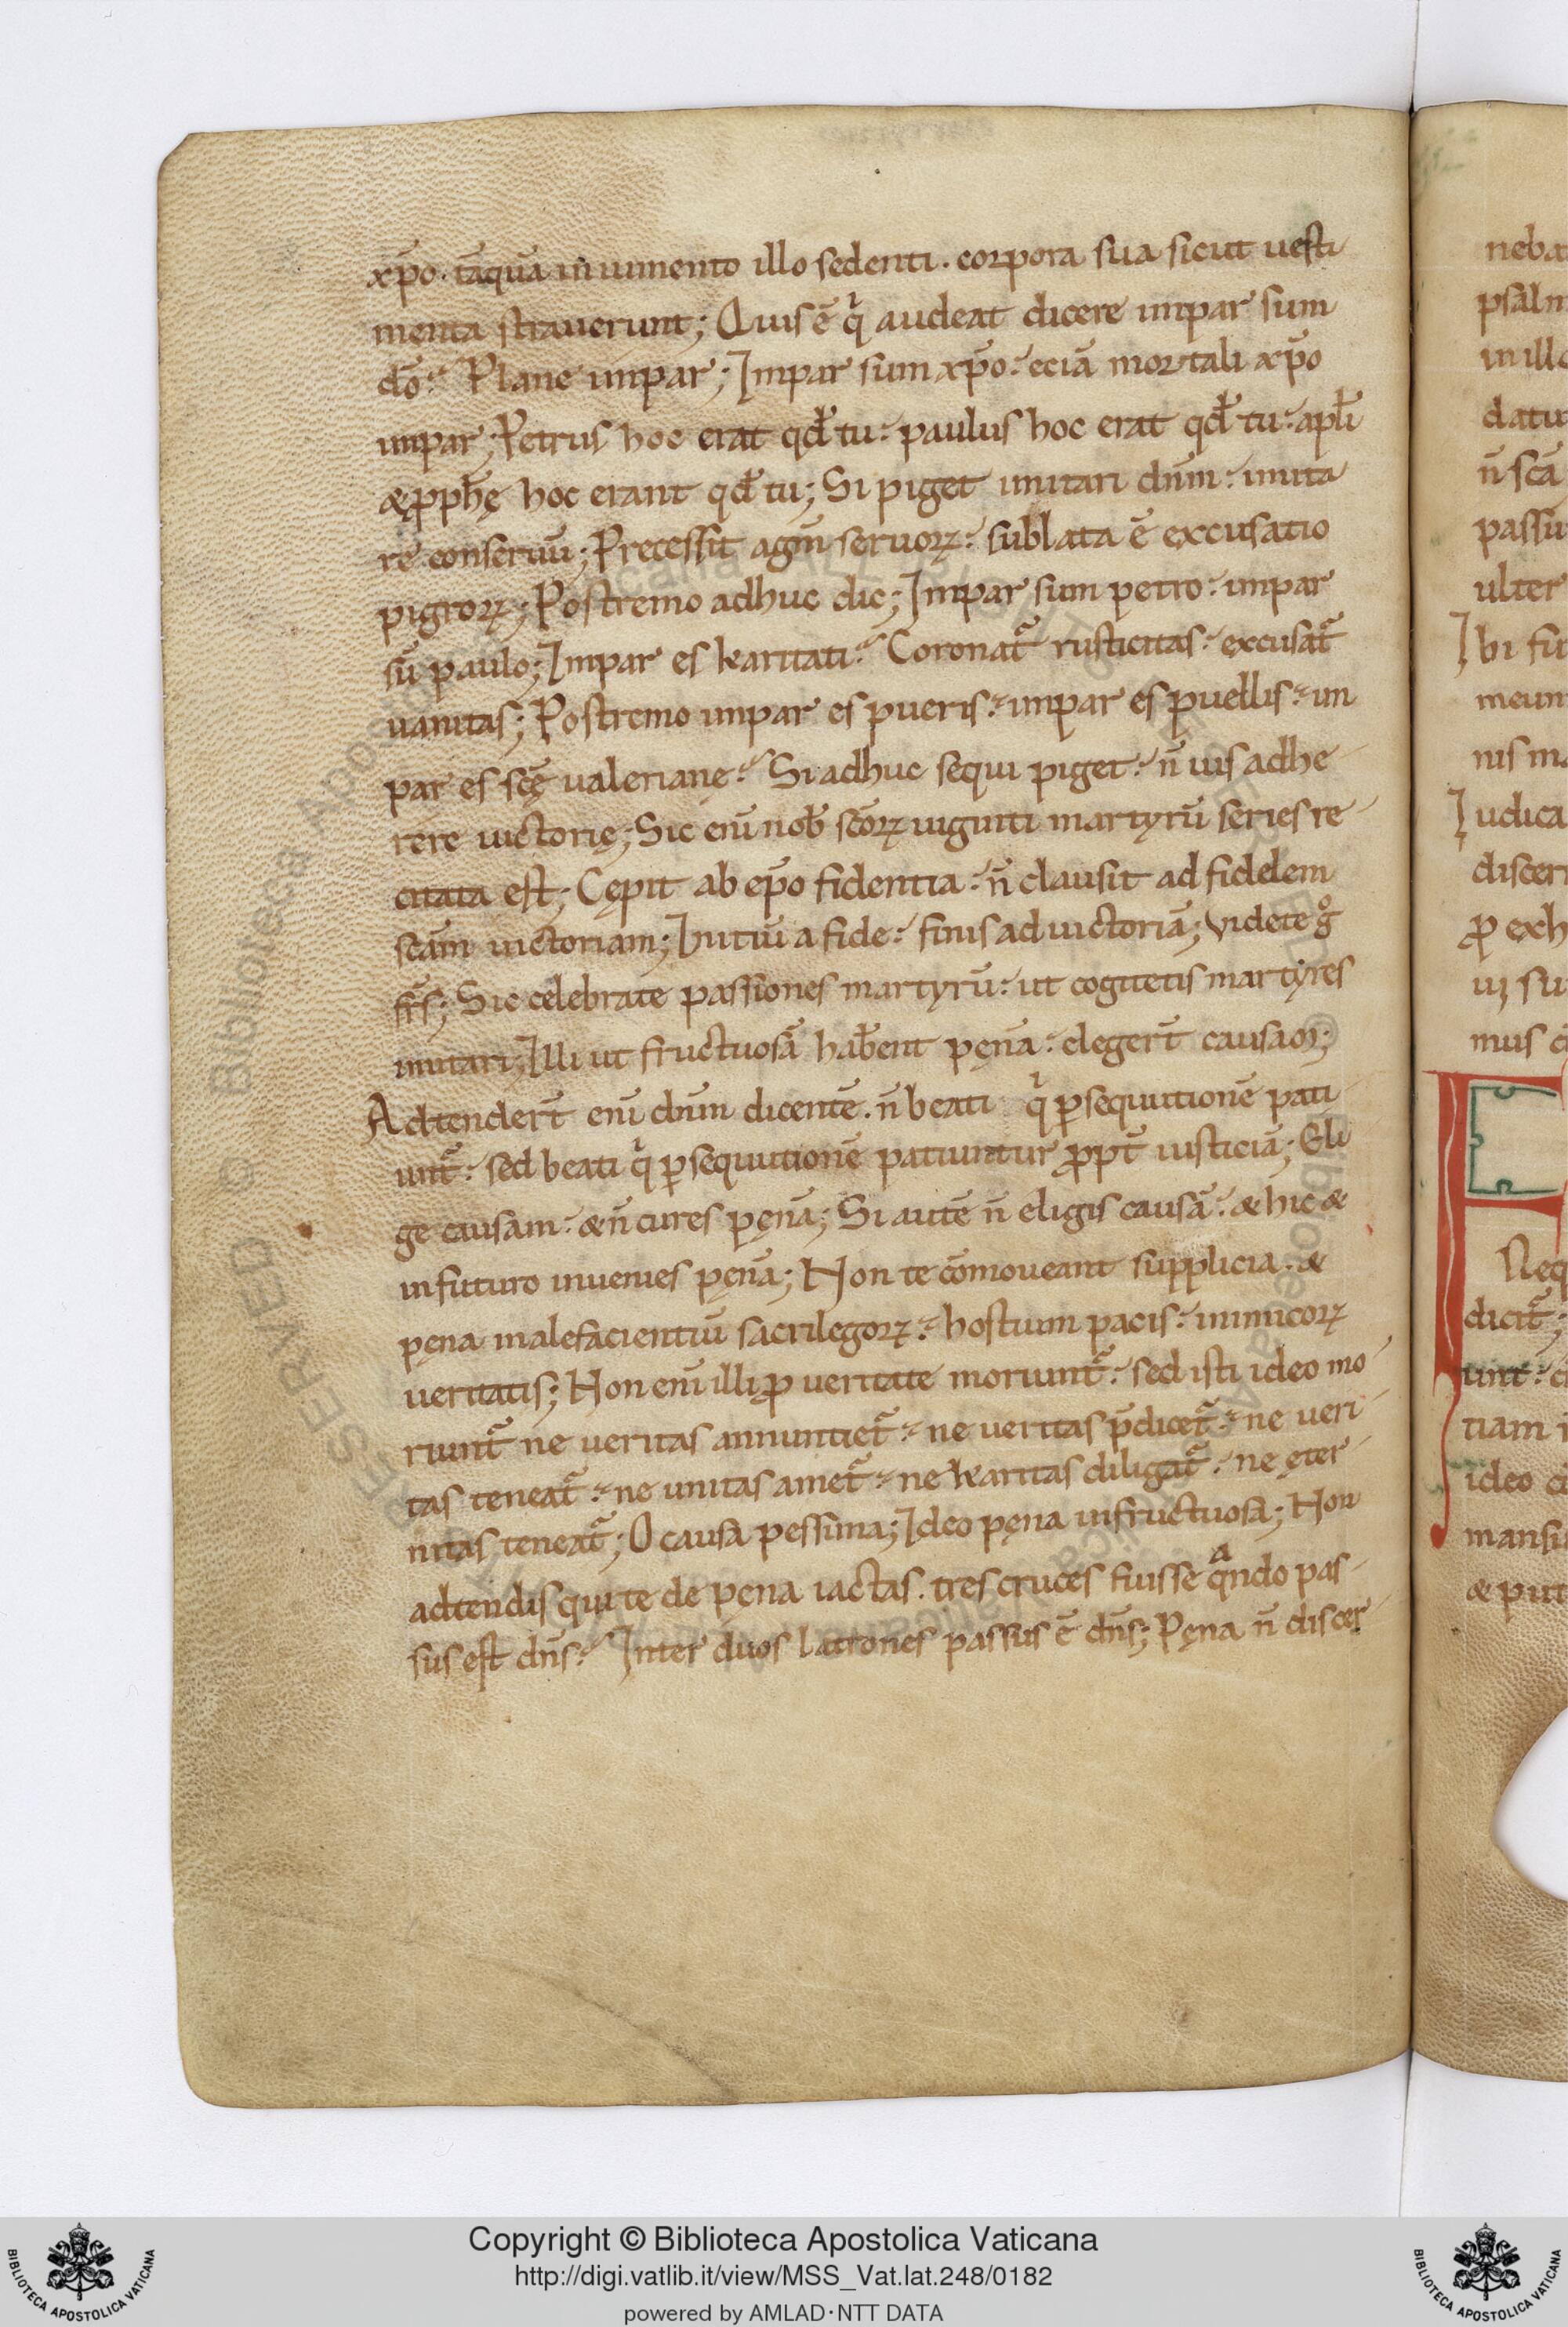 xp̄o. tāquā in iumento illo sedenti. corpora sua sicut uesti
menta strauerunt; Quis ē q̇ audeat dicere impar sum
dō? Plane impar; Impar sum xp̄o. eciā mortali xp̄o
impar; Petrus hoc erat qđ tu. paulus hoc erat qđ tu. apłi
& ꝓpħę hoc erant qđ tu; Si piget imitari dn̄m. imita
re conseruū; Precessit agm̄ seruoꝝ. sublata ē excusatio
pigroꝝ; Postremo adhuc dic; Impar sum petro. impar
sū paulo; Impar es karitati? Coronat᷑ rusticitas. excusat᷑
uanitas; Postremo impar es pueris? impar es puellis? im
par es scę̄ ualerianę? Si adhuc sequi piget. n̄ uis adhe
rere uictorię; Sic eni nob̄ scōꝝ uiginti martyrū series re
citata est; Cępit ab ep̄o fidentia. n̄ clausit ad fidelem
scām uictoriam; Initiū a fide. finis ad uictoriā; Videte g̊
fr̄s; Sic celebrate passiones martyrū. ut cogitetis martyres
imitari; Illi ut fructuosā hab̄ent pęnā. elegert̄ causam;
Adtendert̄ eni dn̄m dicentē. n̄ beati q̇ ꝑsequutionē pati
unt᷑. sed beati q̇ ꝑsequutionē patiuntur ꝓpt̄ iusticiā; Eli
ge causam. & n̄ cures pęnā; Si autē n̄ eligis causā. & hic &
in futuro inuenies pęnā; Non te cōmoueant supplicia. &
pęna malefacientiū sacrilegoꝝ? hostium pacis. inimicoꝝ
ueritatis; Non eni illi ꝓ ueritate moriunt᷑. sed isti ideo mo
riunt᷑ ne ueritas annuntiet᷑? ne ueritas p̄dicet᷑? ne ueri
tas teneat᷑? ne unitas amet᷑? ne karitas diligat᷑. ne ęter
nitas teneat᷑; O causa pessima; Ideo pęna infructuosa; Non
adtendis qui te de pęna iactas. tres cruces fuisse qͣndo pas
sus est dn̄s? Inter duos latrones passus ē dn̄s; Pęna n̄ discer
neba
psalm
in illo
datu
n̄ scā
passiū
ulter
Ibi fu
meum
nis ma
Iudica
discern
ꝓ exh
su
mus c
Neq
dicit᷑;
unt. c
tiam i
ideo
mansi
& put
© Biblioteca Apostolica Vaticana ALL RIGHTS RESERVED
Copyright © Biblioteca Apostolica Vaticana
http://digi.vatlib.it/view/MSS_Vat.lat.248/0182
powered by AMLAD·NTT DATA
BIBLIOTECA APOSTOLICA VATICANA
BIBLIOTECA APOSTOLICA VATICANA